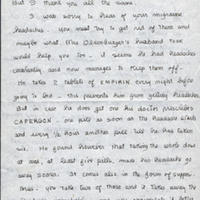 But I thank you all the same.
I was sorry to hear of your migraine
headaches. You must try to get rid of them and
maybe what Mrs husband took
would help you too. It seems he had headaches
constantly and now manages to keep them off.
He takes 2 tablets of EMPIRIN every night before
going to bed - this prevents him from getting headaches.
But in case he does get one his doctor prescribes
CAFERGON. one pill as soon as the headache starts
and every 1/2 hours another pill till he has taken
six. He found however that taking the whole dose
at once, at least five pills, makes his headache go
away sooner. It comes also in the form of suppos-
itories. You take two of those and it takes away the